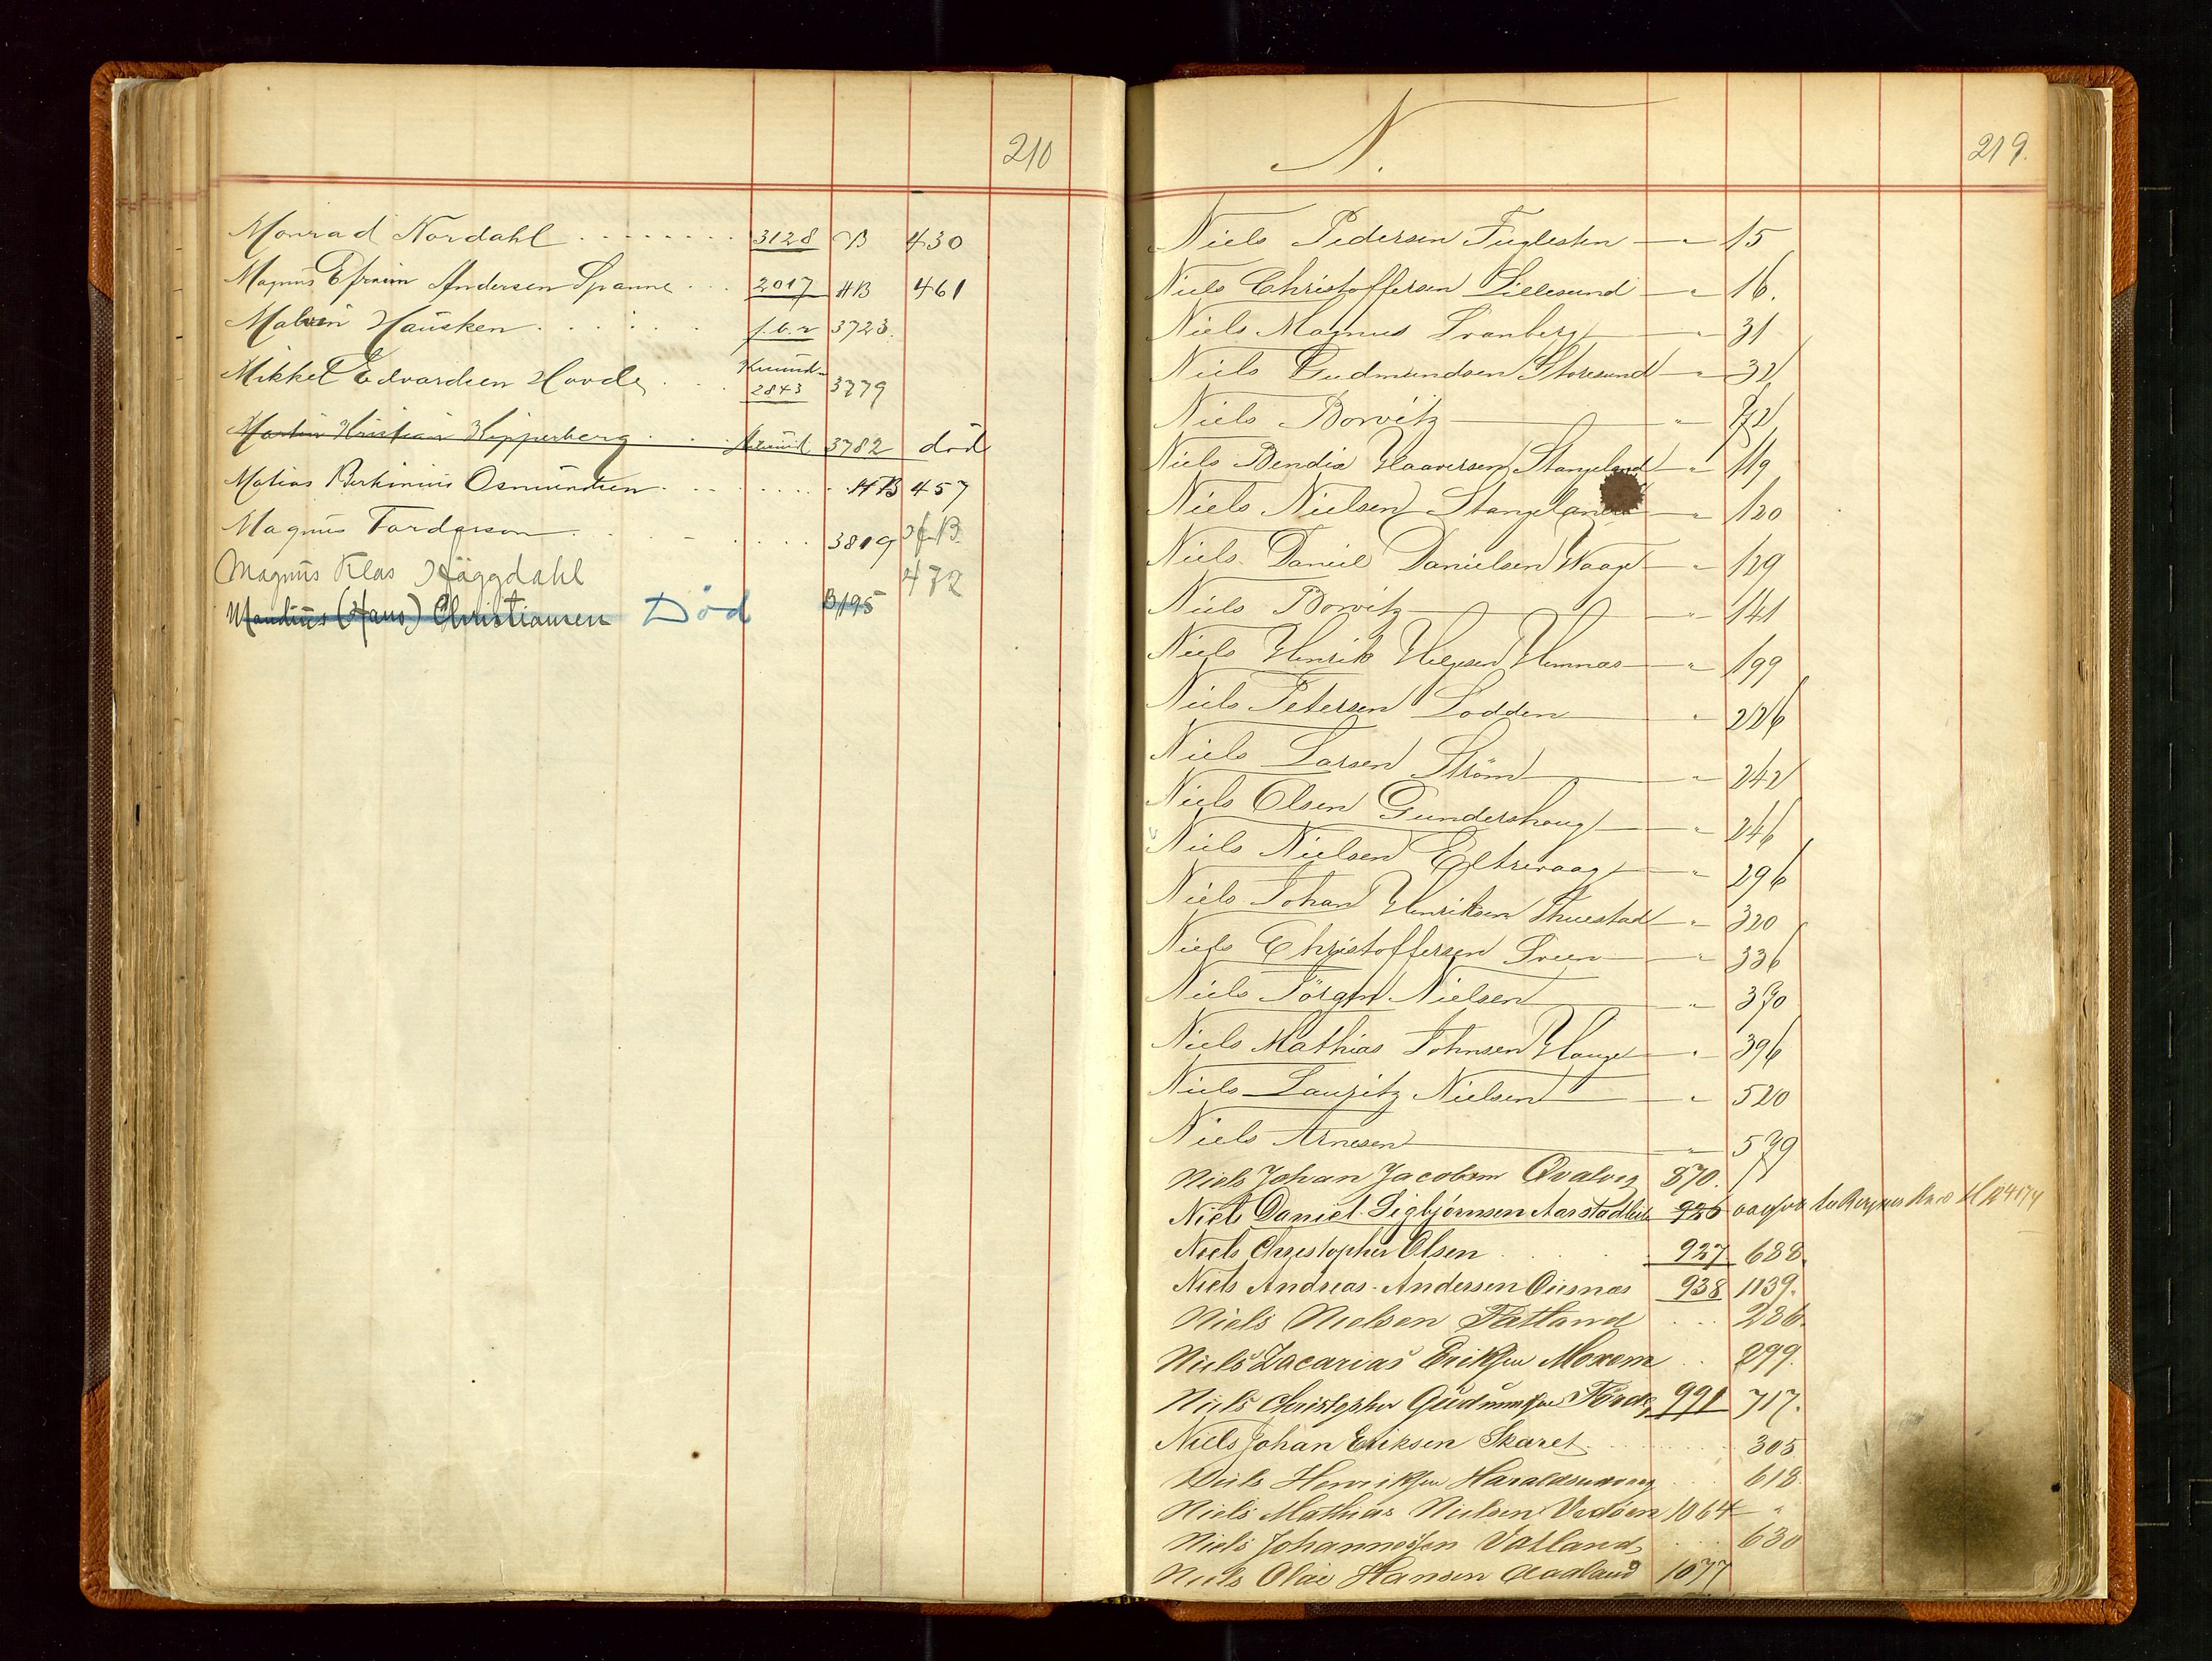 210
Monrad Nordahl . . . . . . . . 3128 B 430
Magnus Efraim Andersen Spanne . . . 2017 HB 461
Malvin Hausken . . . . . . f.b.r 3723.
Mikkel Edvardsen Hovde . . Kvind- 2843 3779
Martin Kristian Kipperberg . . . 3782 død
Matias Berkinius Osmundsen . . . . . . . . HB 457
Magnus Tarderson . . . . . . . 3819 HB
Magnus Klas Häggdahl 472
Mandius (Hans) Christiansen Död B195
N.
219.
Niels Pedersen Fuglesten — " 15
Niels Christoffersen Lillesund — " 16.
Niels Magnus Svanberg — " 31
Niels Gudmundsen Storesund — " 32
Niels Borvitz — " 72
Niels Bendix Haaversen Stangeland — " 119
Niels Nielsen Stangeland — " 120
Niels Daniel Danielsen Waage — " 129
Niels Borvitz — " 141
Niels Henrik Helgesen Hemnæs — " 199
Niels Petersen Lodden — " 226
Niels Larsen Strøm — " 242
Niels Olsen Gundershaug — " 246
Niels Nielsen Eltrevaag — " 296
Niels Johan Henriksen Thuestad — " 320
Niels Christoffersen Sveen — " 336
Niels Jörgen Nielsen — " 370
Niels Mathias Johnsen Hauge — " 396
Niels Lauritz Nielsen — " 520
Niels Arnesen — " 579
Niels Johan Jacobsen Qvalvig 870.
Niels Daniel Sigbjørnsen Aarstadlid 926
Niels Christopher Olsen . . . . 927 688.
Niels Andreas Andersen Oiesnæs 938 1139.
Niels Nielsen Fatland . . . 286.
Niels Zacarias Eriksen Moxem . . 299.
Niels Christopher Gudmundsen Førde 991 717.
Niels Johan Eriksen Skaret . . . . . . 305
Niels Henriksen Haraldseidvaag . . 618
Niels Mathias Nielsen Vedøen 1064 — "
Niels Johannessen Vatland . . . 630
Niels Olai Hansen Aadland 1077